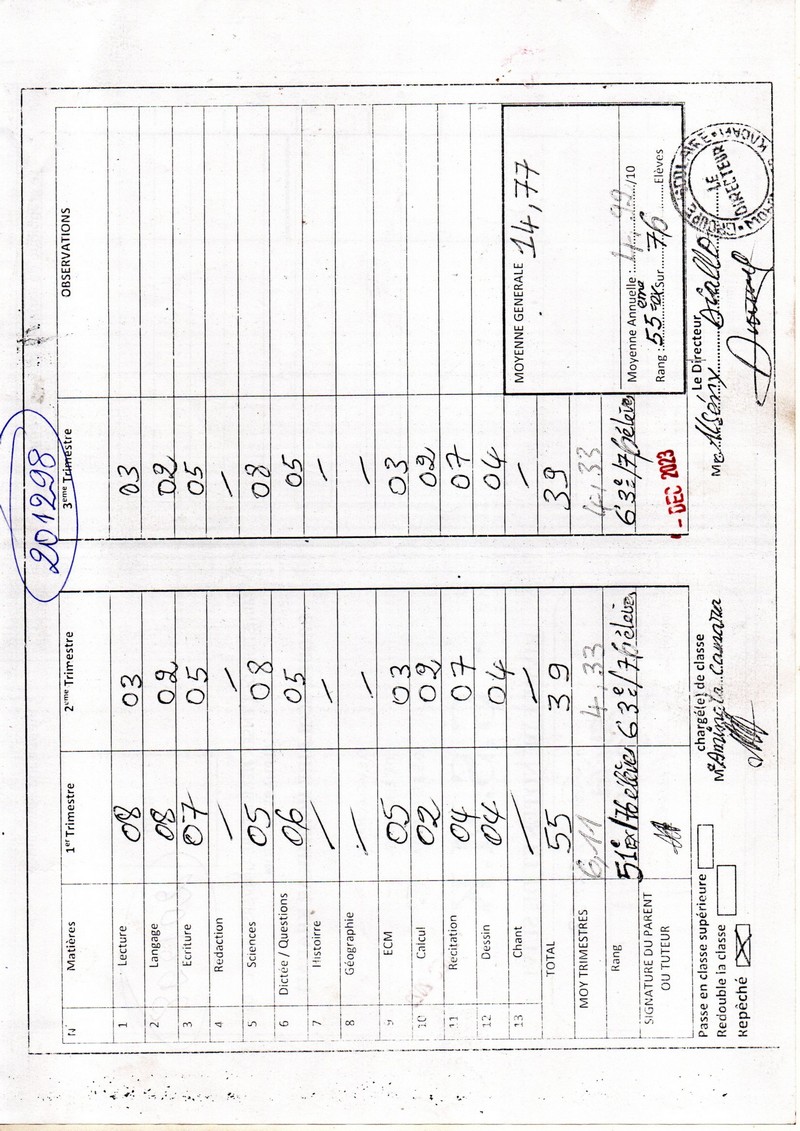 201298
N° Matières 1er Trimestre 2eme Trimestre 3eme Trimestre OBSERVATIONS
1 Lecture 08 03 03
2 Langage 08 02 02
3 Ecriture 07 05 05
4 Rédaction — — —
5 Sciences 05 08 08
6 Dictée / Questions 06 05 05
7 Histoirre — — —
8 Géographie — — —
9 ECM 05 03 03
10 Calcul 02 02 02
11 Recitation 04 07 07
12 Dessin 04 04 04
13 Chant — — —
TOTAL 55 39 39
MOY TRIMESTRES 6,11 4,33 4,33
Rang 51e ex/76 elèves 63e/76 élèves 63e/76 élèves
SIGNATURE DU PARENT
OU TUTEUR
- DEC 2023
MOYENNE GENERALE 14,77
Moyenne Annuelle : 4,99 /10
Rang : 55 eme ex sur 76 Elèves
Passe en classe supérieure
Redouble la classe
Repêché X
chargé(e) de classe
Camara
Le Directeur
Diallo
GROUPE SCOLAIRE
LE
DIRECTEUR